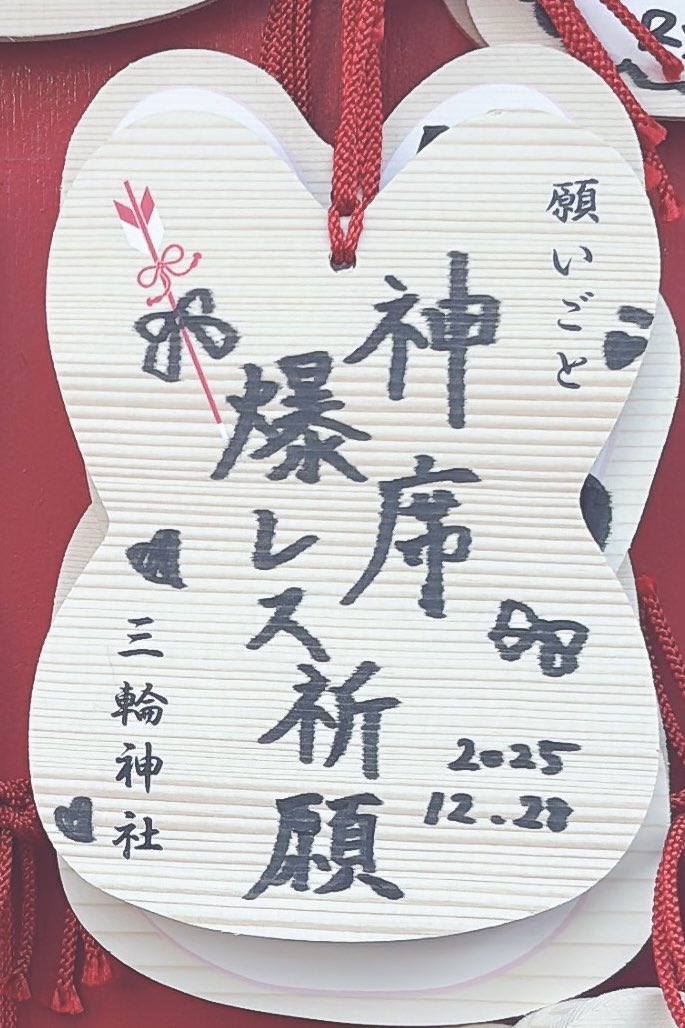 願いごと
神席
爆レス祈願
2025
三輪神社